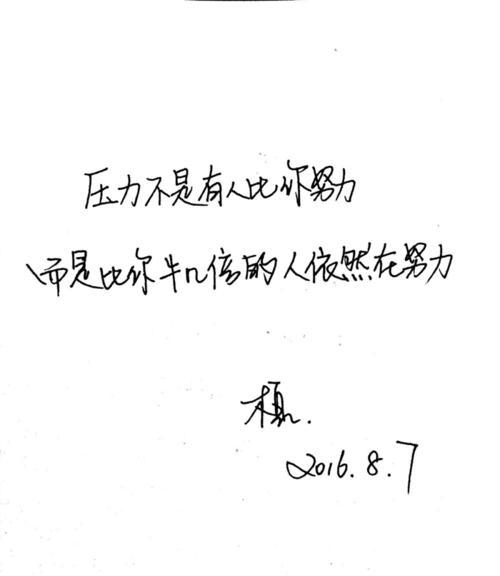 压力不是有人比你努力
而是比你牛几倍的人依然在努力
2016.8.7